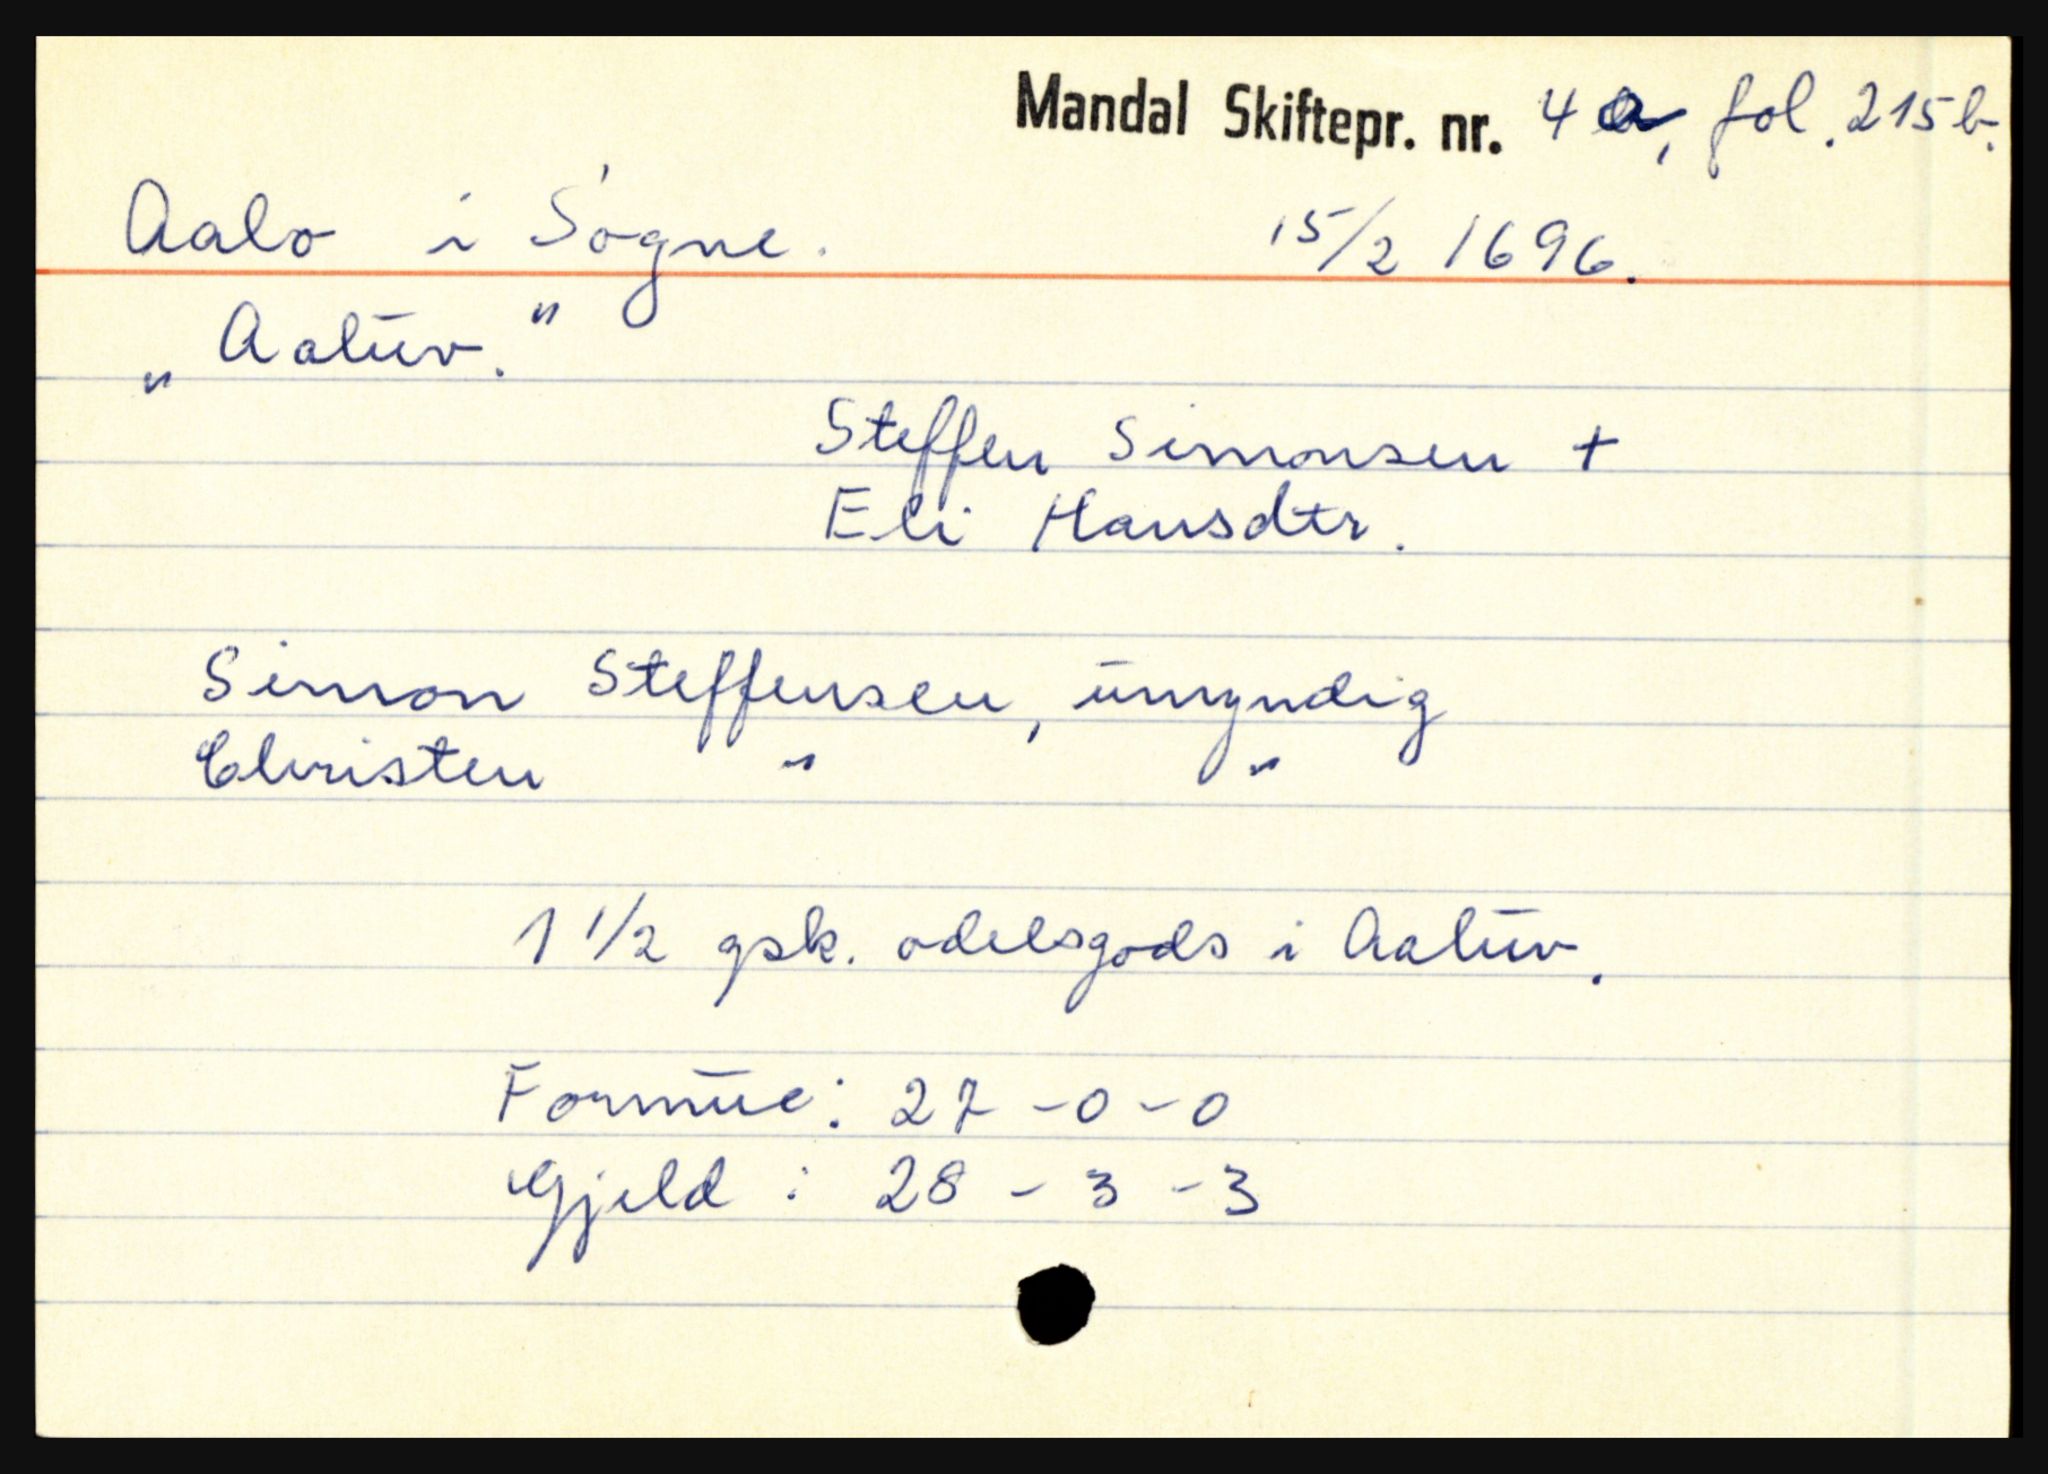 Mandal Skiftepr. nr. 4 a, fol. 215b.
Aalo i Søgne. 15/2 1696.
„Aaluv."
Steffen Simonsen +
Eli Hansdtr.
Simon Steffensen, umyndig
Christen " "
1 1/2 gsk. odelsgods i Aaluv.
Formue: 27 - 0 - 0
Gjeld : 28 - 3 - 3